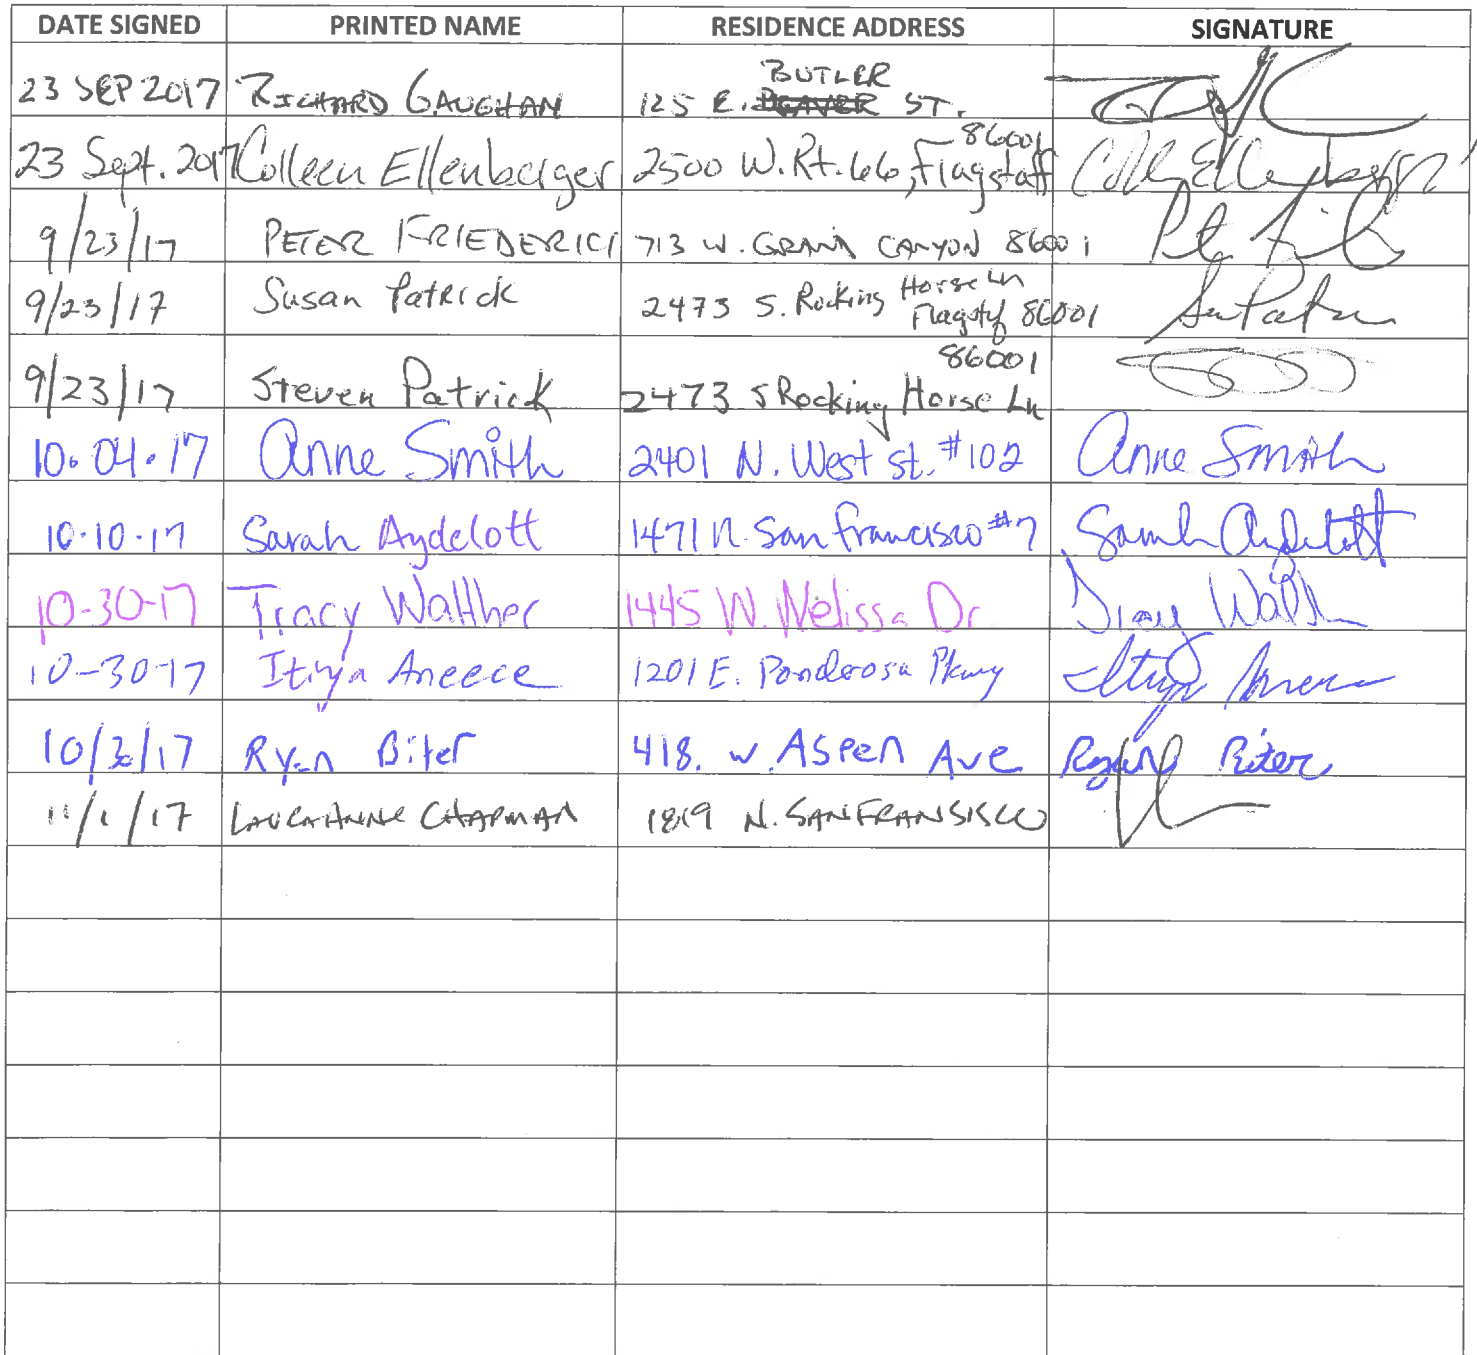 DATE SIGNED PRINTED NAME RESIDENCE ADDRESS SIGNATURE
23 SEP 2017 RICHARD GAUGHAN 125 E. BEAVER BUTLER ST.
23 Sept. 2017 Colleen Ellenberger 2500 W. Rt. 66, Flagstaff 86001
9/23/17 PETER FRIEDERICI 713 W. GRAND CANYON 86001
9/23/17 Susan Patrick 2473 S. Rocking Horse Ln Flagstf 86001
9/23/17 Steven Patrick 2473 S Rocking Horse Ln 86001
10.04.17 Anne Smith 2401 N. West st. #102 Anne Smith
10.10.17 Sarah Aydelott 1471 N. San francisco #7 Sarah Aydelott
10-30-17 Tracy Walther 1445 W. Melissa Dr
10-30-17 Itiya Aneece 1201 E. Ponderosa Pkwy Itiya Aneece
10/3/17 Ryan Biter 418. W. Aspen Ave Ryan Biter
11/1/17 LAURAANNE CHAPMAN 1819 N. SANFRANSISCO